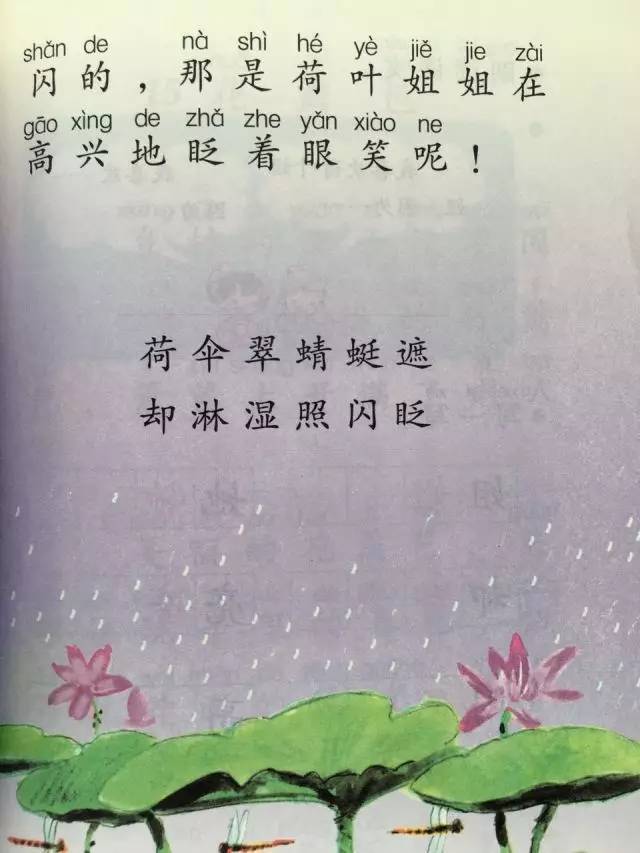 shǎn de nà shì hé yè jiě jie zài
闪的，那是荷叶姐姐在
gāo xìng de zhǎ zhe yǎn xiào ne
高兴地眨着眼笑呢！
荷伞翠蜻蜓遮
却淋湿照闪眨